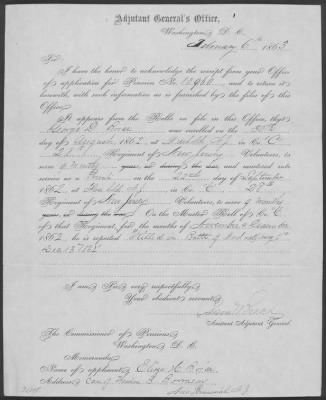 Adjutant General's Office,
Washington, D. C.
February 6th 1863
Sir:
I have the honor to acknowledge the receipt from your Office
of application for Pension No. and to return it
herewith with such information as is furnished by the files of this
Office.
It appears from the Rolls on file in this Office, that
George D. was enrolled on the 30th
day of August, 1862, at N.J. in Co. "C"
28 Regiment of New Jersey Volunteers, to
serve 9 months years, or during the war, and mustered into
service as a on the 22nd day of September
1862, at Freehold N.J. in Co. C 28th
Regiment of New Jersey Volunteers, to serve 9 months
years, or during the war. On the Muster Roll of Co. C
of that Regiment, for the months of November & December
1862, he is reported "Killed in Battle of
Dec 13th 1862
I am Sir, very respectfully,
Your obedient servant,
Assistant Adjutant General
The Commissioner of Pensions
Washington D. C.
Memoranda:
Name of applicant, Eliza
Address,
New Brunswick N.J.